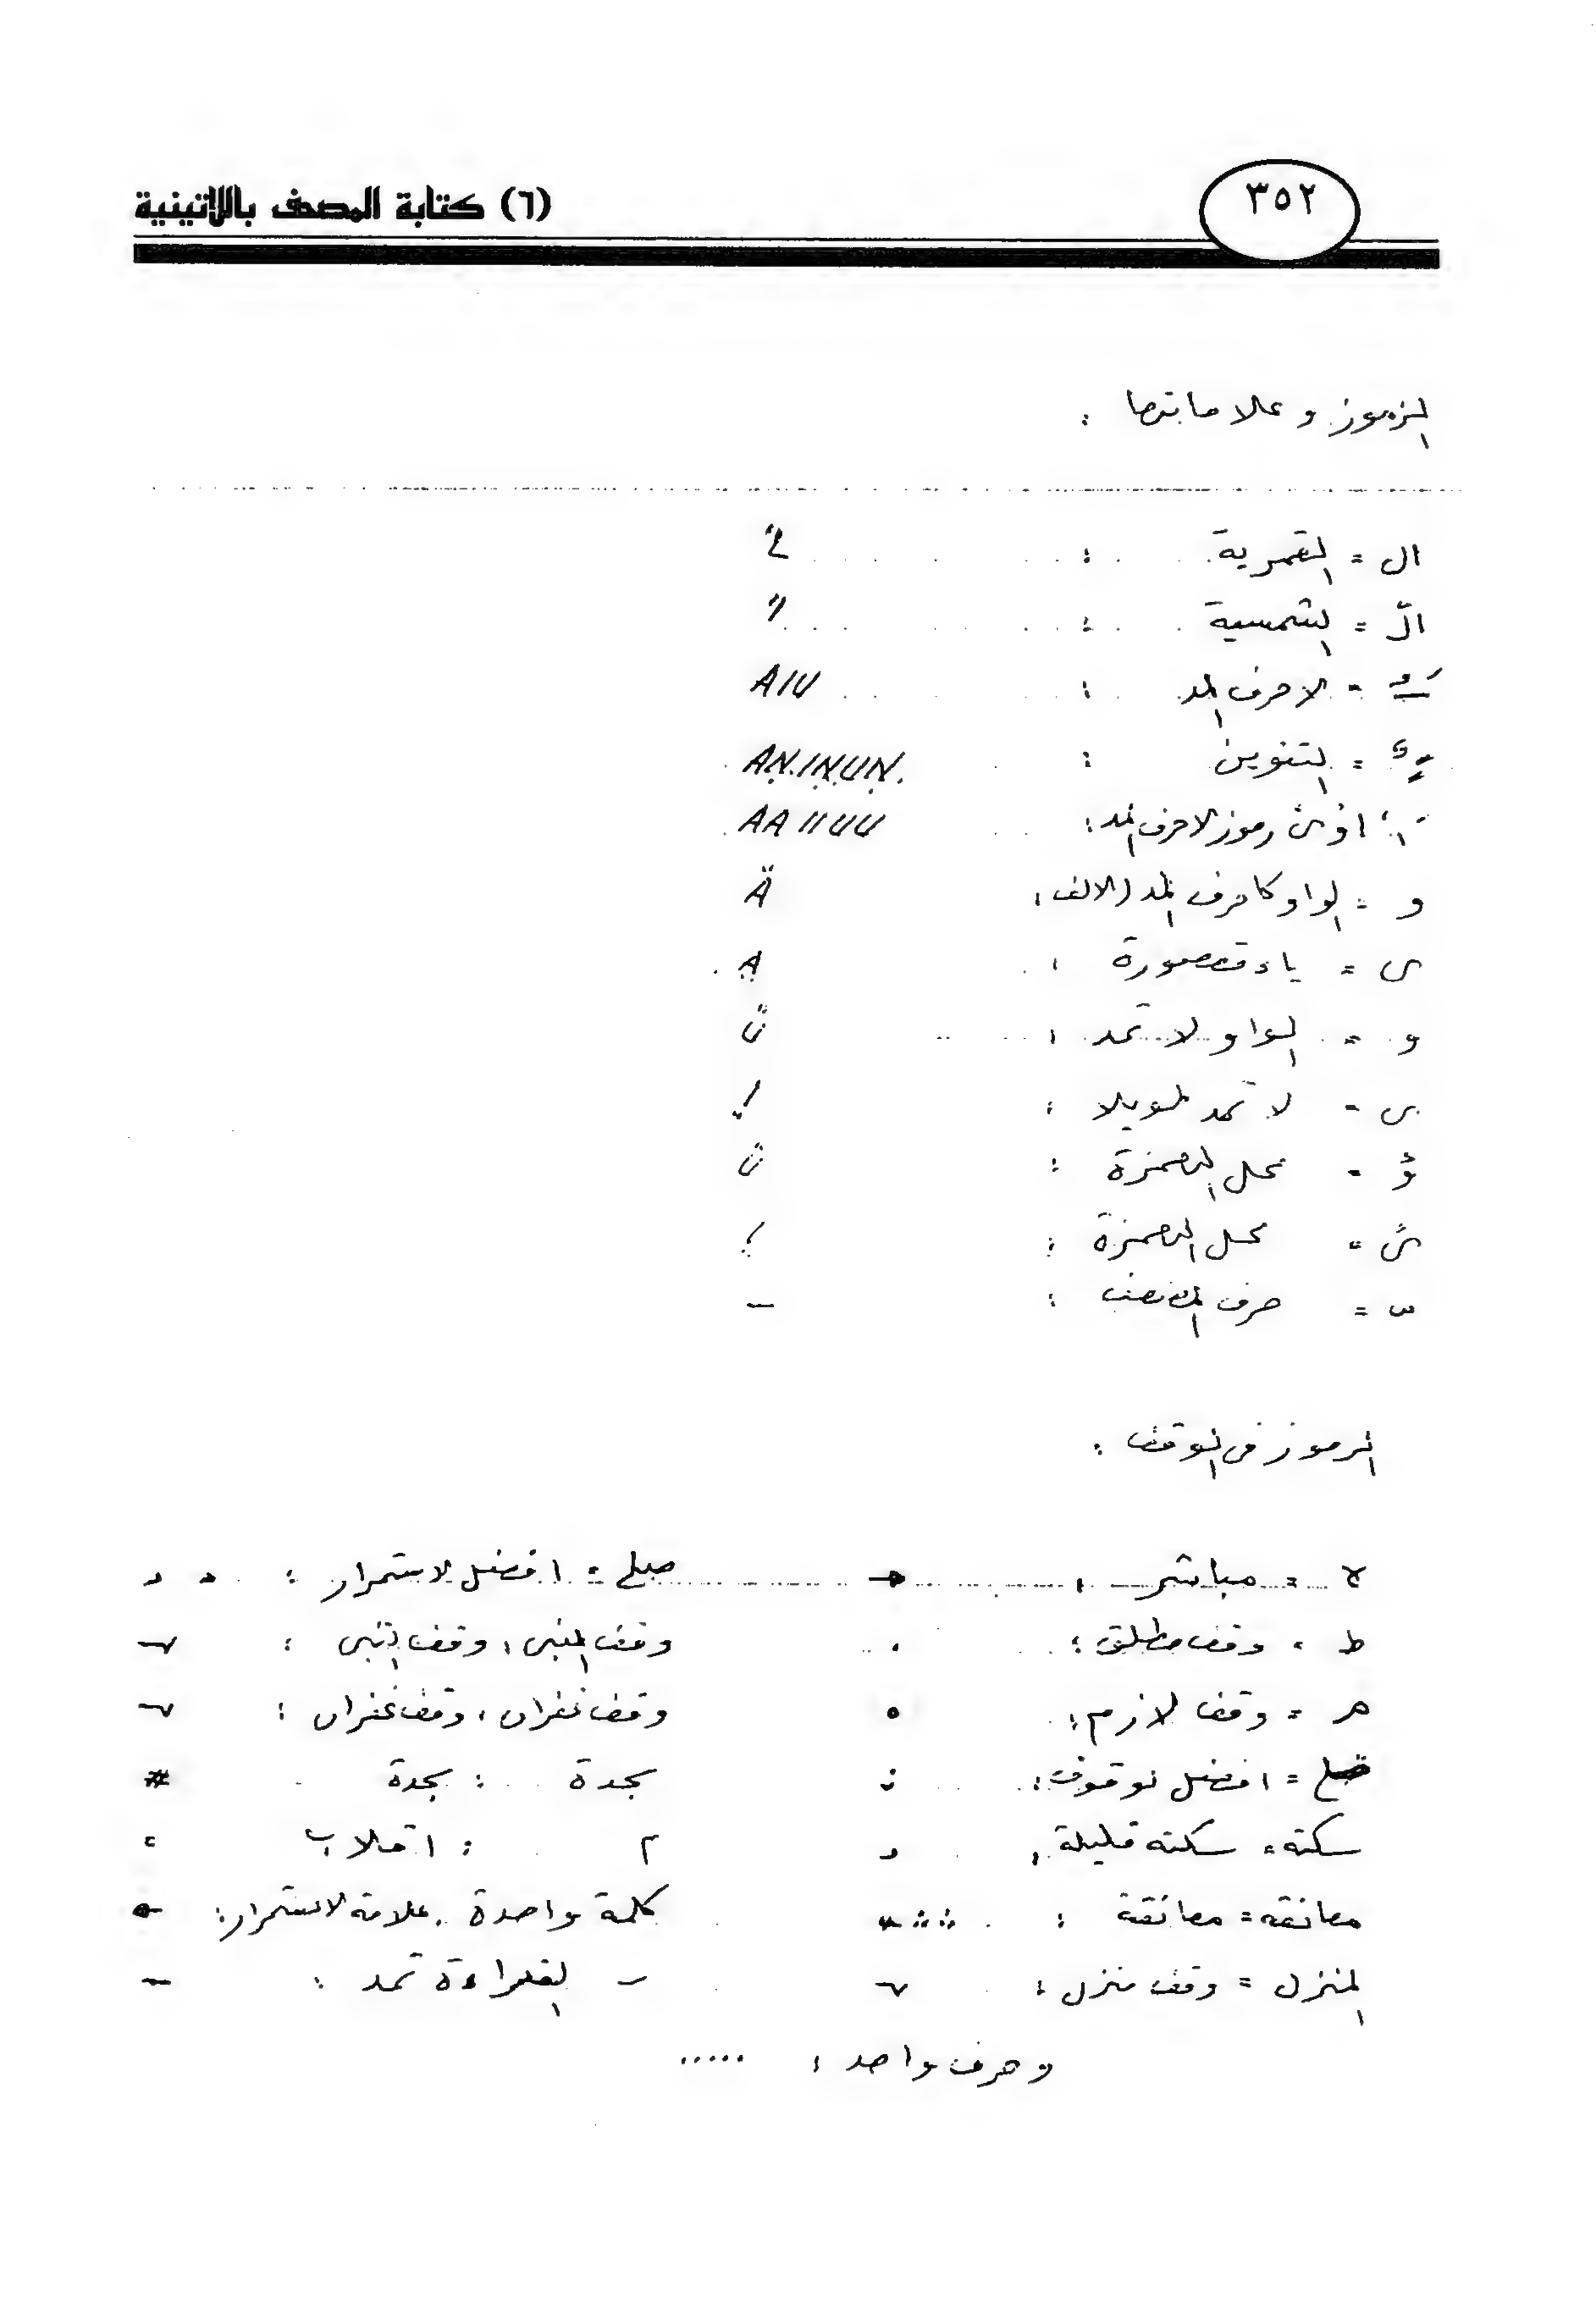 ٣٥٢
(٦) كتابة المصحف باللاتينية
الرموز وعلاماتها :
ال = القمرية :
الّ = الشمسية : "
= الاحرف المد : A I U
= التنوين : AN. IN. UN.
رموز الاحرف المد : AA II UU
و = الواو كاحرف المد (الالف : Ä
ى = ياء قصورة : A
و = الواو لا تمد :
ى = لا تمد طويلا :
ؤ = محل الهمزة :
ئ = محل الهمزة :
= حرف :  –
الرموز فى الوقف :
لا = مباشر :
صلى = افضل الاستمرار :
ط = وقف مطلق : .
وقف النبى ، وقف النبى :
هـ = وقف لازم : o
وقف غفران ، وقف غفران :
= افضل لوقوف : :
سجدة : سجدة #
سكتة = سكتة قليلة :
م : اقلاب
معانقه = معانقة :
كلمة واحدة . علامة الاستمرار :
المنزل = وقف منزل :
القراءة تمد : –
وحرف واحد : .....